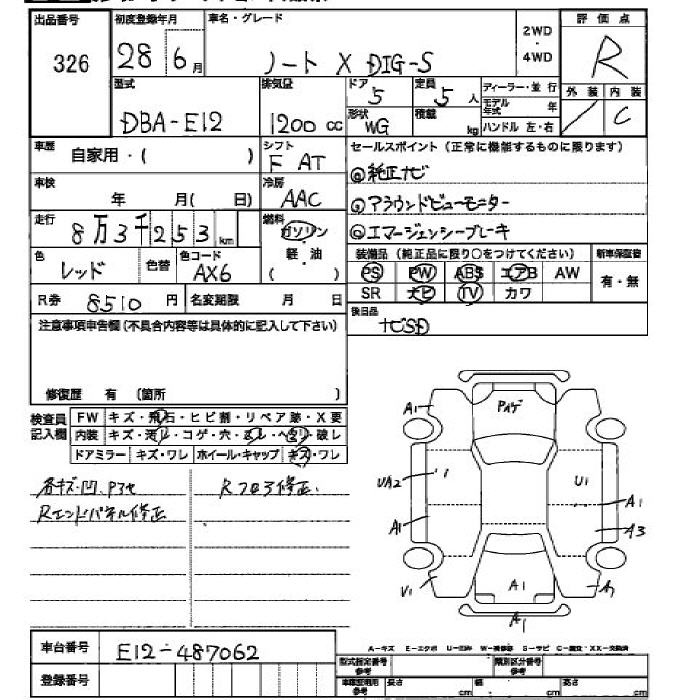 出品番号 326
初度登録年月 28 6月
車名・グレード ノート X DIG-S
2WD・4WD
評価点 R
外装 / 内装 C
型式 DBA-E12
排気量 1200cc
ドア 5
形状 WG
定員 5人
積載 kg
ディーラー・並行
モデル年式 年
ハンドル 左・右
車歴 自家用・( )
シフト F AT
セールスポイント(正常に機能するものに限ります)
純正ナビ
アラウンドビューモニター
エマージェンシーブレーキ
車検 年 月( 日)
冷房 AAC
走行 8万3千253km
燃料 ガソリン・軽油 ( )
色 レッド 色替
色コード AX6
装備品(純正品に限り○をつけてください)
PS PW ABS エアB AW
SR ナビ TV カワ
新車保証書 有・無
R券 8510円
名変期限 月 日
後日品 ナビSD
注意事項申告欄(不具合内容等は具体的に記入して下さい)
修復歴 有 (箇所 )
検査員記入欄
FW キズ・飛石・ヒビ割・リペア跡・X要
内装 キズ・汚レ・コゲ・穴・スレ・ヘタリ・破レ
ドアミラー キズ・ワレ ホイール・キャップ キズ・ワレ
各キズ・凹、Pヌセ
Rエンドパネル修正
Rフロア修正
A1
Pハゲ
UA2
U1
A1
A1
A3
V1
A1
A1
車台番号 E12-487062
登録番号
A-キズ E-エクボ U-凹み W-補修跡 S-サビ C-腐食・XX-交換済
型式指定番号 参考
類別区分番号 参考
車庫証明用 参考
長さ cm 幅 cm 高さ cm